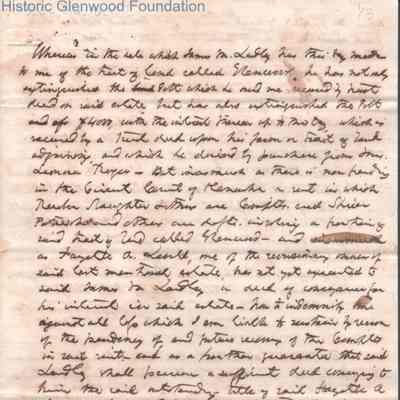 Historic Glenwood Foundation
Whereas in the sale which James M. Laidley has this day made
to me of the tract of land called Glenwood, he has not only
extinguished the debt which he owed me secured by trust
deed on said estate but has also extinguished the debt
of $4000, with the interest thereon up to this day, which is
secured by a trust deed upon his farm or tract of land
adjoining, and which he derived by purchase from Mrs.
Leonora Noyes - But inasmuch as there is now pending
in the Circuit Court of Kanawha a suit in which
Slaughter & others are Complts. and
and others are defts. involving a portion of
said tract of land called Glenwood - and
as Fayette A. Lovell, one of the owners of
said last mentioned estate, has not yet executed to
said James M. Laidley a deed of conveyance for
his interest in said estate - has to indemnify me
against all loss which I am liable to sustain by reason
of the pendency of and future recovery of the Complts
in said suit, and as a further guarantee that said
Laidley shall procure a sufficient deed conveying to
him the said outstanding title of said Fayette A